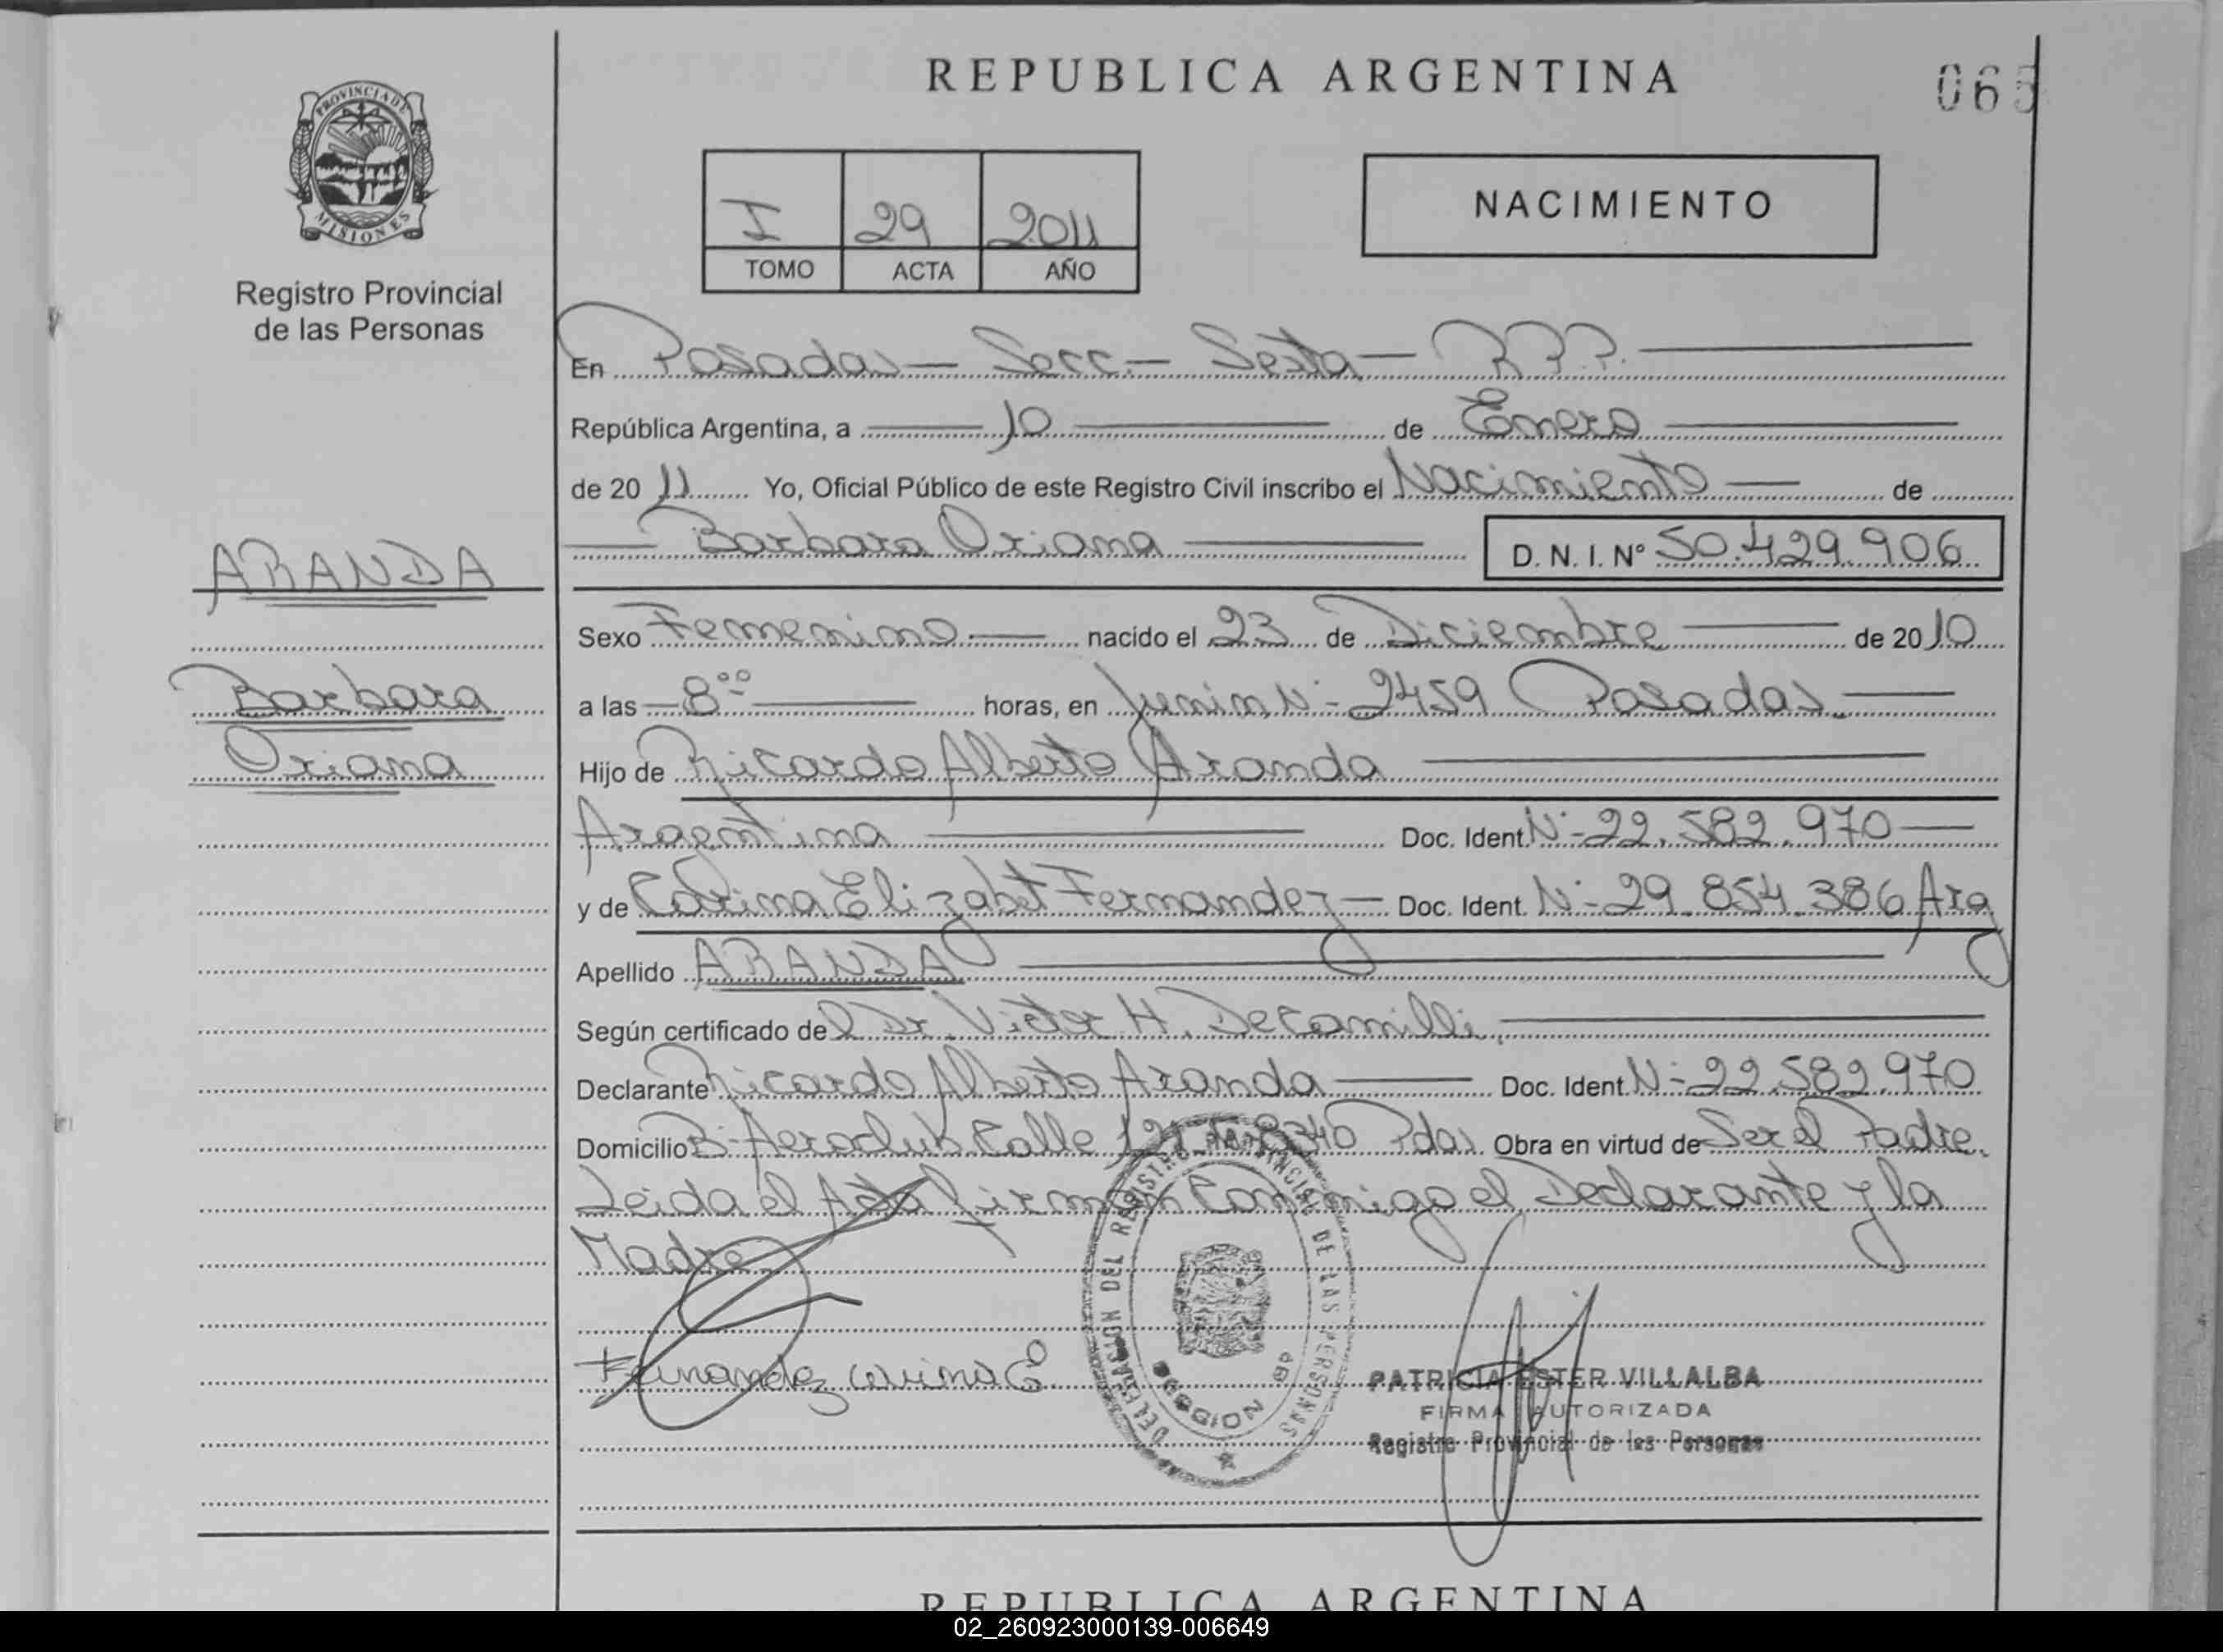 REPUBLICA ARGENTINA
065
PROVINCIA DE
MISIONES
Registro Provincial
de las Personas
I 29 2011
TOMO ACTA AÑO
NACIMIENTO
En Posadas - Secc. - Sexta - R.P.P.
República Argentina, a 10 de Enero
de 2011 Yo, Oficial Público de este Registro Civil inscribo el Nacimiento de
Barbara Oriana D. N. I. N° 50.429.906
ARANDA
Barbara
Oriana
Sexo Femenino nacido el 23 de Diciembre de 2010
a las 8°° horas, en Junin N:- 2459 Posadas.
Hijo de Ricardo Alberto Aranda
Argentina Doc. Ident. N:- 22.582.970
y de Corina Elizabet Fernandez Doc. Ident. N:- 29.854.386 Arg
Apellido ARANDA
Según certificado del Dr. Victor H. Decamilli.
Declarante Ricardo Alberto Aranda Doc. Ident. N:- 22.582.970
Domicilio B:- Aeroclub Calle Pdas. Obra en virtud de Ser el Padre.
Leida el Acta firman Conmigo el Declarante y la
Madre
Fernandez Corina E
DELEGACION DEL REGISTRO PROVINCIAL DE LAS PERSONAS
SECCION 6a
PATRICIA ESTER VILLALBA
FIRMA AUTORIZADA
Registro Provincial de las Personas
REPUBLICA ARGENTINA
02_260923000139-006649